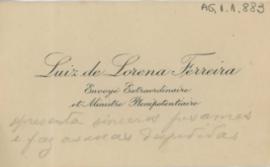 AG, 1.1.883
Luiz de Lorena Ferreira
Envoyé Extraordinaire
et Ministre Plénipotentiaire
apresenta sinceros pesames
e faz as suas despedidas